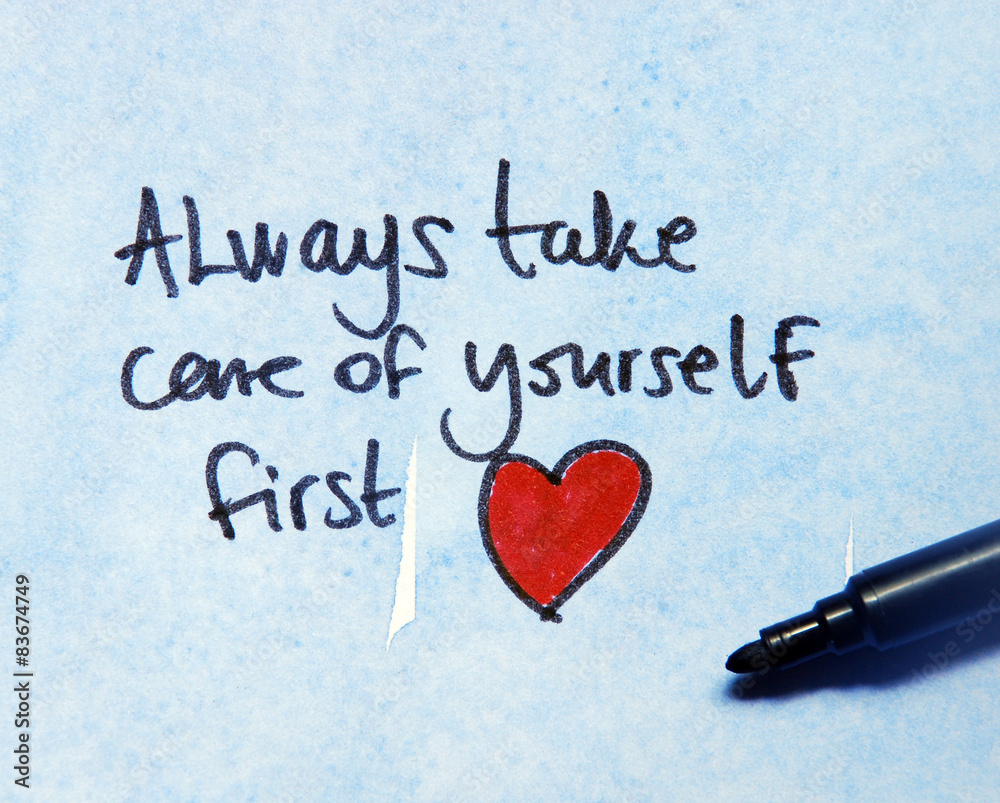 Always take
care of yourself
first
Adobe Stock | #83674749